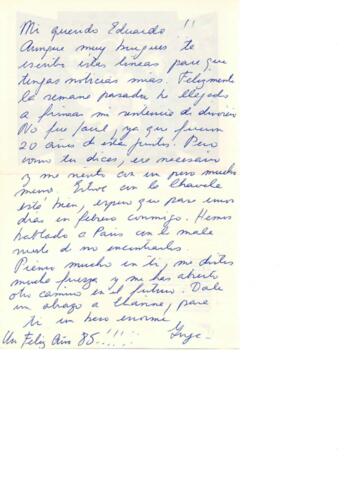 Mi querido Eduardo !!
Aunque muy te
escribo estas lineas para que
tengas noticias mias. Felizmente
la semana pasada he llegado
a firmar mi sentencia de divorcio
No fue facil, ya que fueron
20 años de estar juntos. Pero
como tu dices, era necesario
y me siento con un peso mucho
menos. Estuve con la Chavela
está bien, espero que pase unos
dias en febrero conmigo. Hemos
hablado a Paris con la mala
suerte de no encontrarlos.
Pienso mucho en ti, me distes
mucha fuerza y me has abierto
otro camino en el futuro. Dale
un abrazo a para
ti un beso enorme
Un Feliz Año 85...!!!!